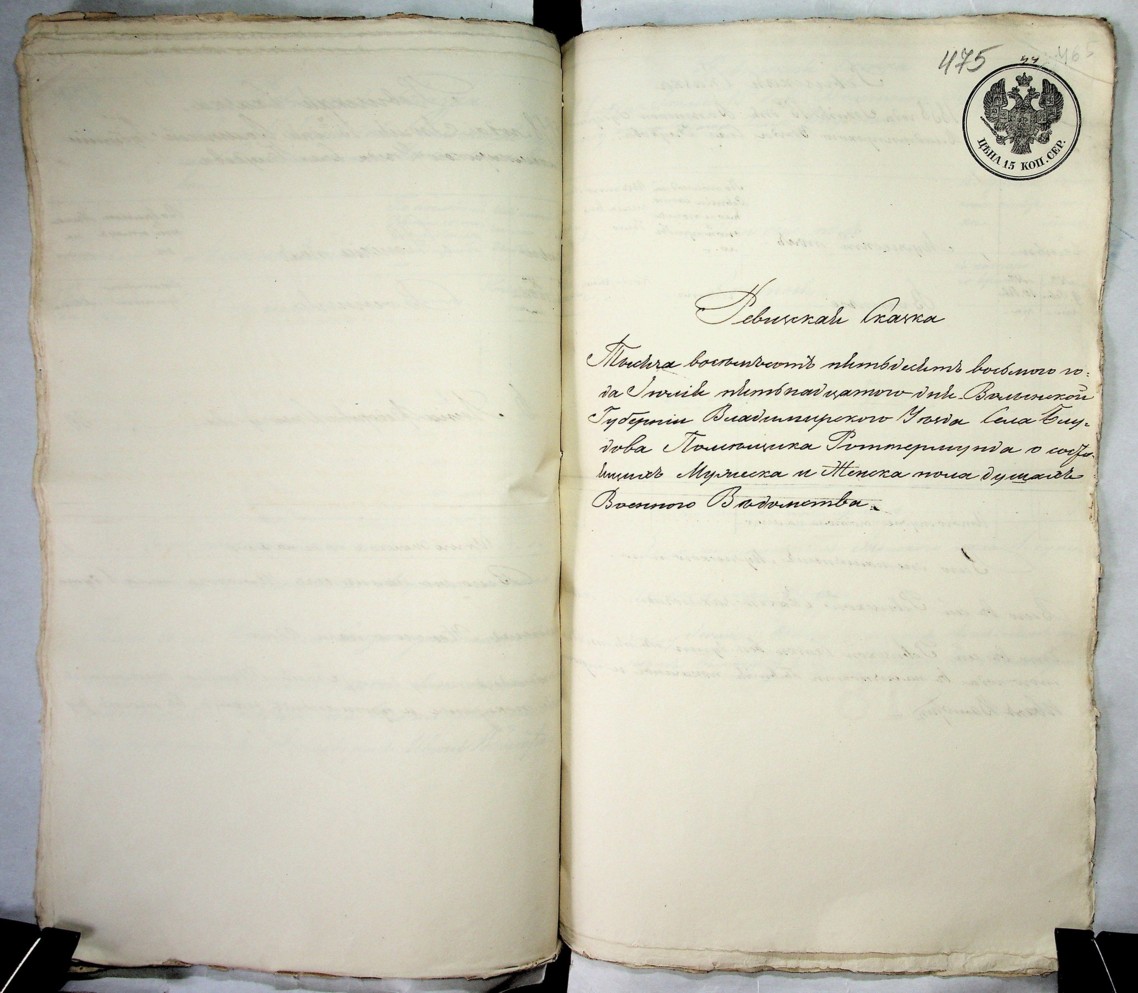 475
ЦѢНА 15 КОП. СЕР.
Ревизская Сказка
Тысяча восемьсотъ пятьдесятъ восьмого го-
да Іюля пятьнадцатого дня Волынской
Губерніи Владимирского Уезда Села Блу-
дова Помѣщика Роттермунда о состоя-
щихъ Мужеска и Женска пола душахъ
Военного Вѣдомства.